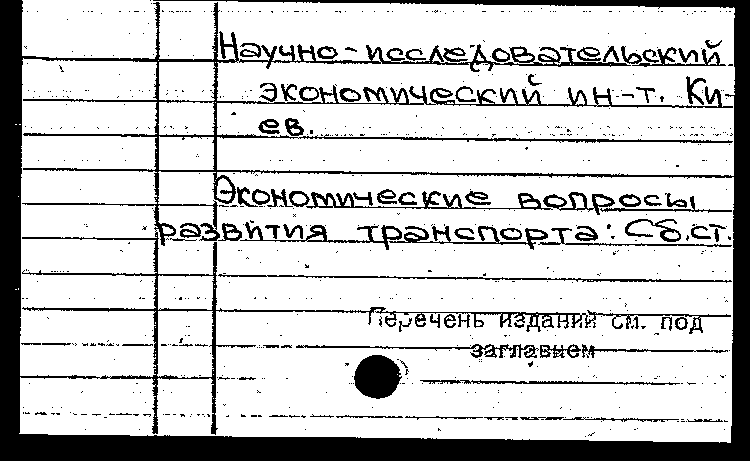 Научно-исследовательский
экономический ин-т. Ки-
ев.
Экономические вопросы
развития транспорта: Сб.ст.
Перечень изданий см. под
заглавием